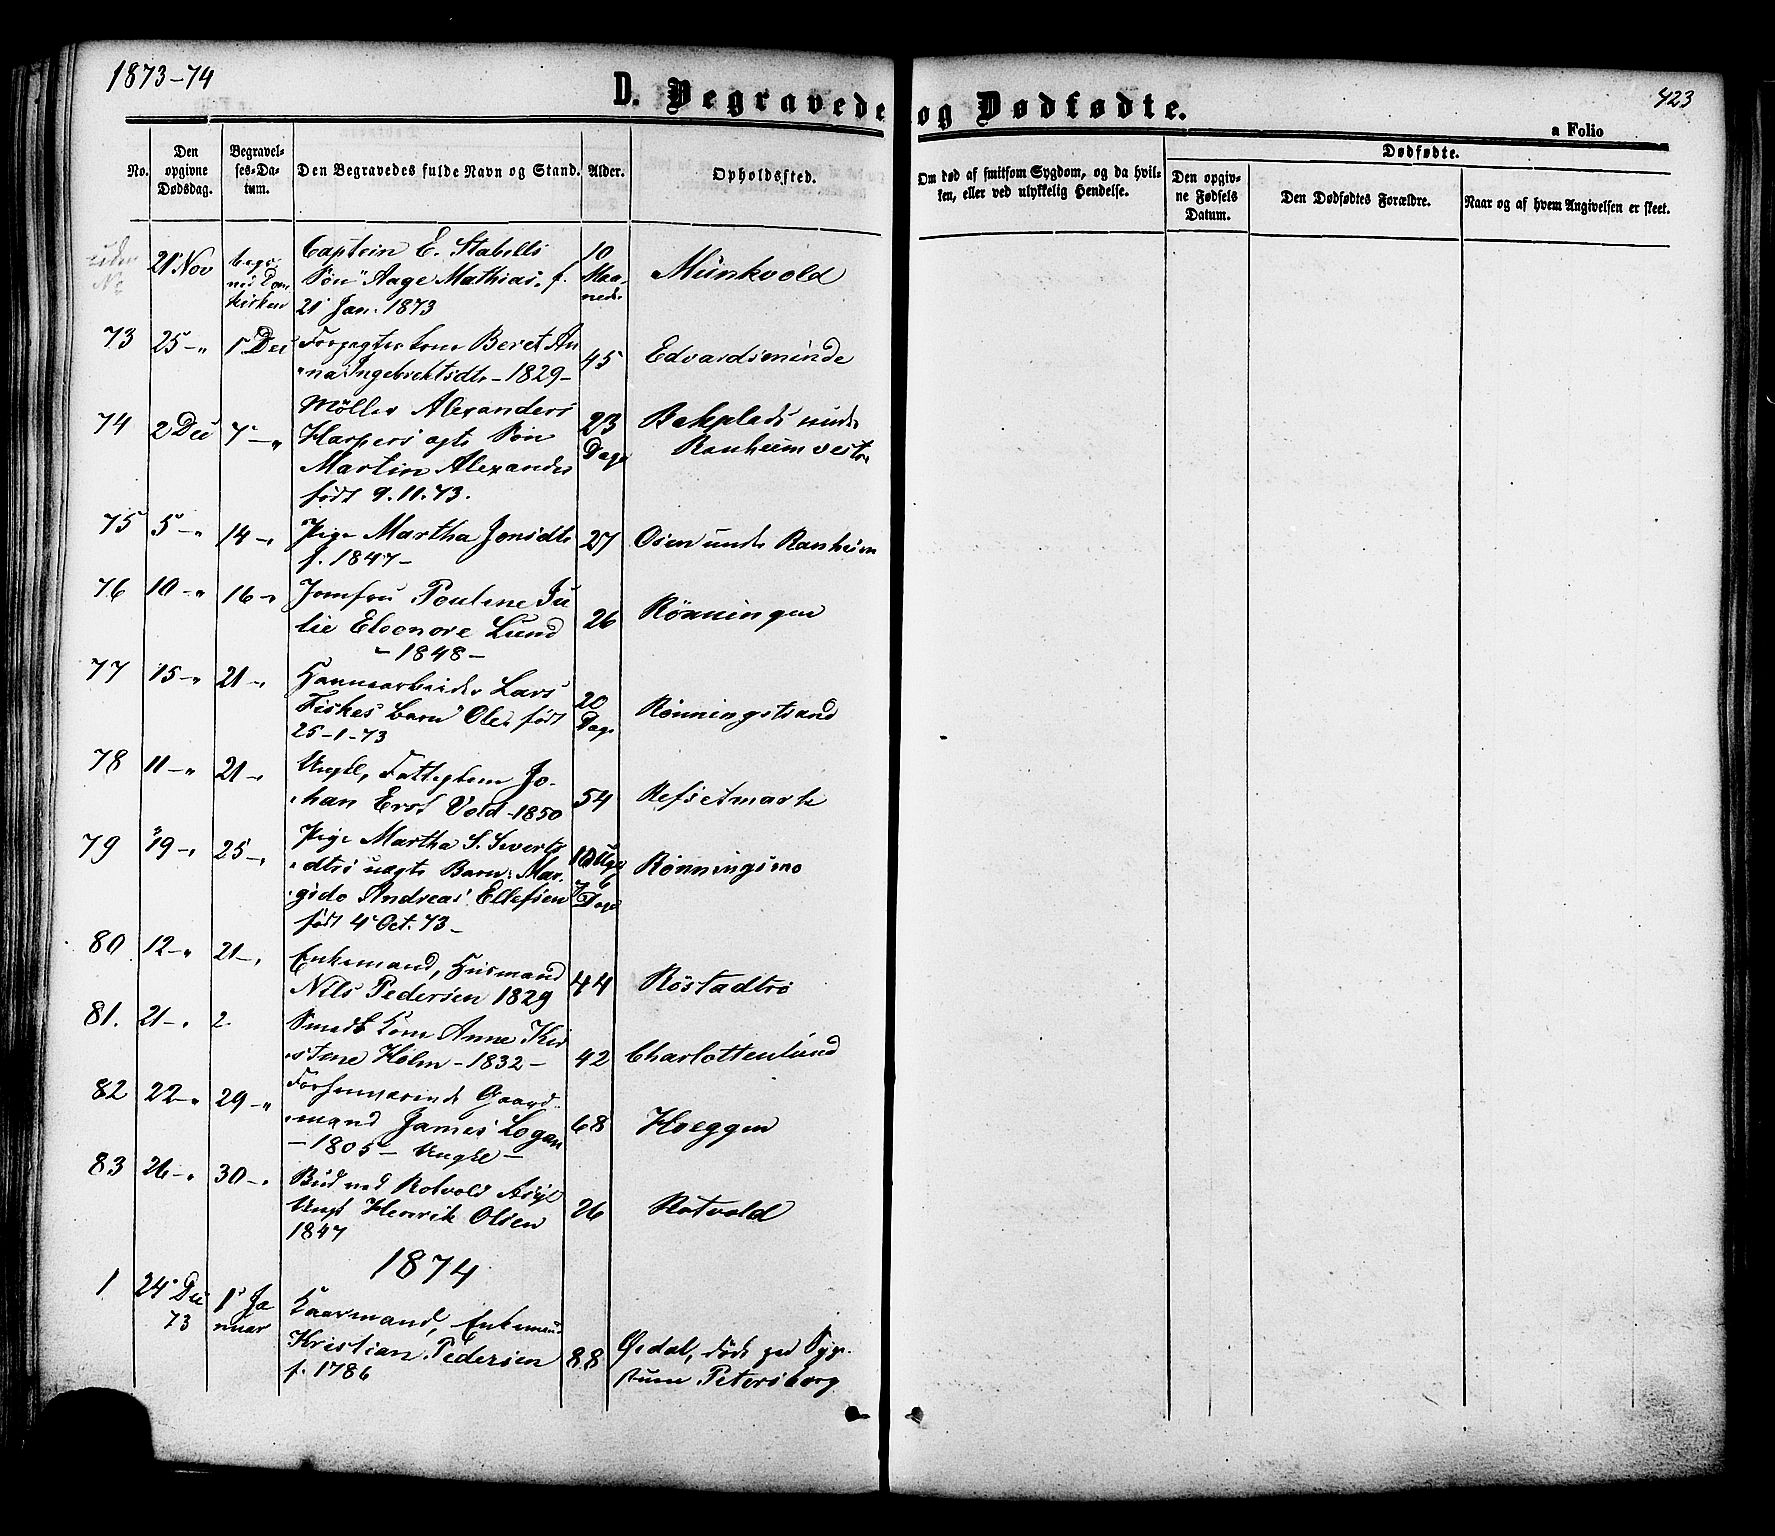 1873-74
D. Begravede og Dødfødte.
423
a Folio
No.
Den opgivne Dødsdag.
Begravelses-Datum.
Den Begravedes fulde Navn og Stand.
Alder.
Opholdssted.
Om død af smitsom Sygdom, og da hvilken, eller ved ulykkelig Hendelse.
Dødfødte.
Den opgivne Fødsels Datum.
Den Dødfødtes Forældre.
Naar og af hvem Angivelsen er skeet.
uden No 21 Nov
Captein E. Stabells
Søn Aage Mathias, f.
21 Jan. 1873
10 Maaneder
Munkvold
73 25 - " 1 Dec
Beret An
na Ingebrichtsdtr - 1829 -
45
Edvardsminde
74 2 Dec 7 - "
Møller Alexanders
Harpers ægte Søn
Martin Alexander
født 9.11.73.
23 Dage
Bakplads under
Ranheim vestre
75 5 - " 14 - "
Pige Martha Jonsdtr
f. 1847 -
27
Osen under Ranheim
76 10 - " 16 - "
Jomfru Pouline Ju
lie Eleonore Lund
- 1848 -
26
Rönningen
77 15 - " 21 - "
Lars
Fiskes Barn Ole, født
25-1-73
20 Dage
Rönningstrand
78 11 - " 21 - "
Ungk., Fattiglem Jo-
han Vold - 1850
54
79 19 - " 25 - "
Pige Martha S. Siverts
dtrs uægte Barn: Mar-
gido Andreas Ellefsen
født 4 Oct. 73 -
Dage
Rönningsmo
80 12 - " 21 - "
Enkemand, Husmand
Nils Pedersen 1829
44
Röstadtrö
81. 21 - " 2
Smedk Kone Anne Kir
stine Holm - 1832 -
42
Charlottenlund
82 22 - " 29 - "
Forhenværende Gaard-
mand James Logan
- 1805 - Ungk. -
68
Hoeggen
83 26 - " 30 - "
Bud ved Rotvold Asyl
Ungk Henrik Olsen
1847
26
Rotvold
1874
1 24 Dec 73 1 Januar
Kaarmand, Enkemand
Kristian Pedersen
f. 1786
88
död paa Syge-
stuen Petersborg